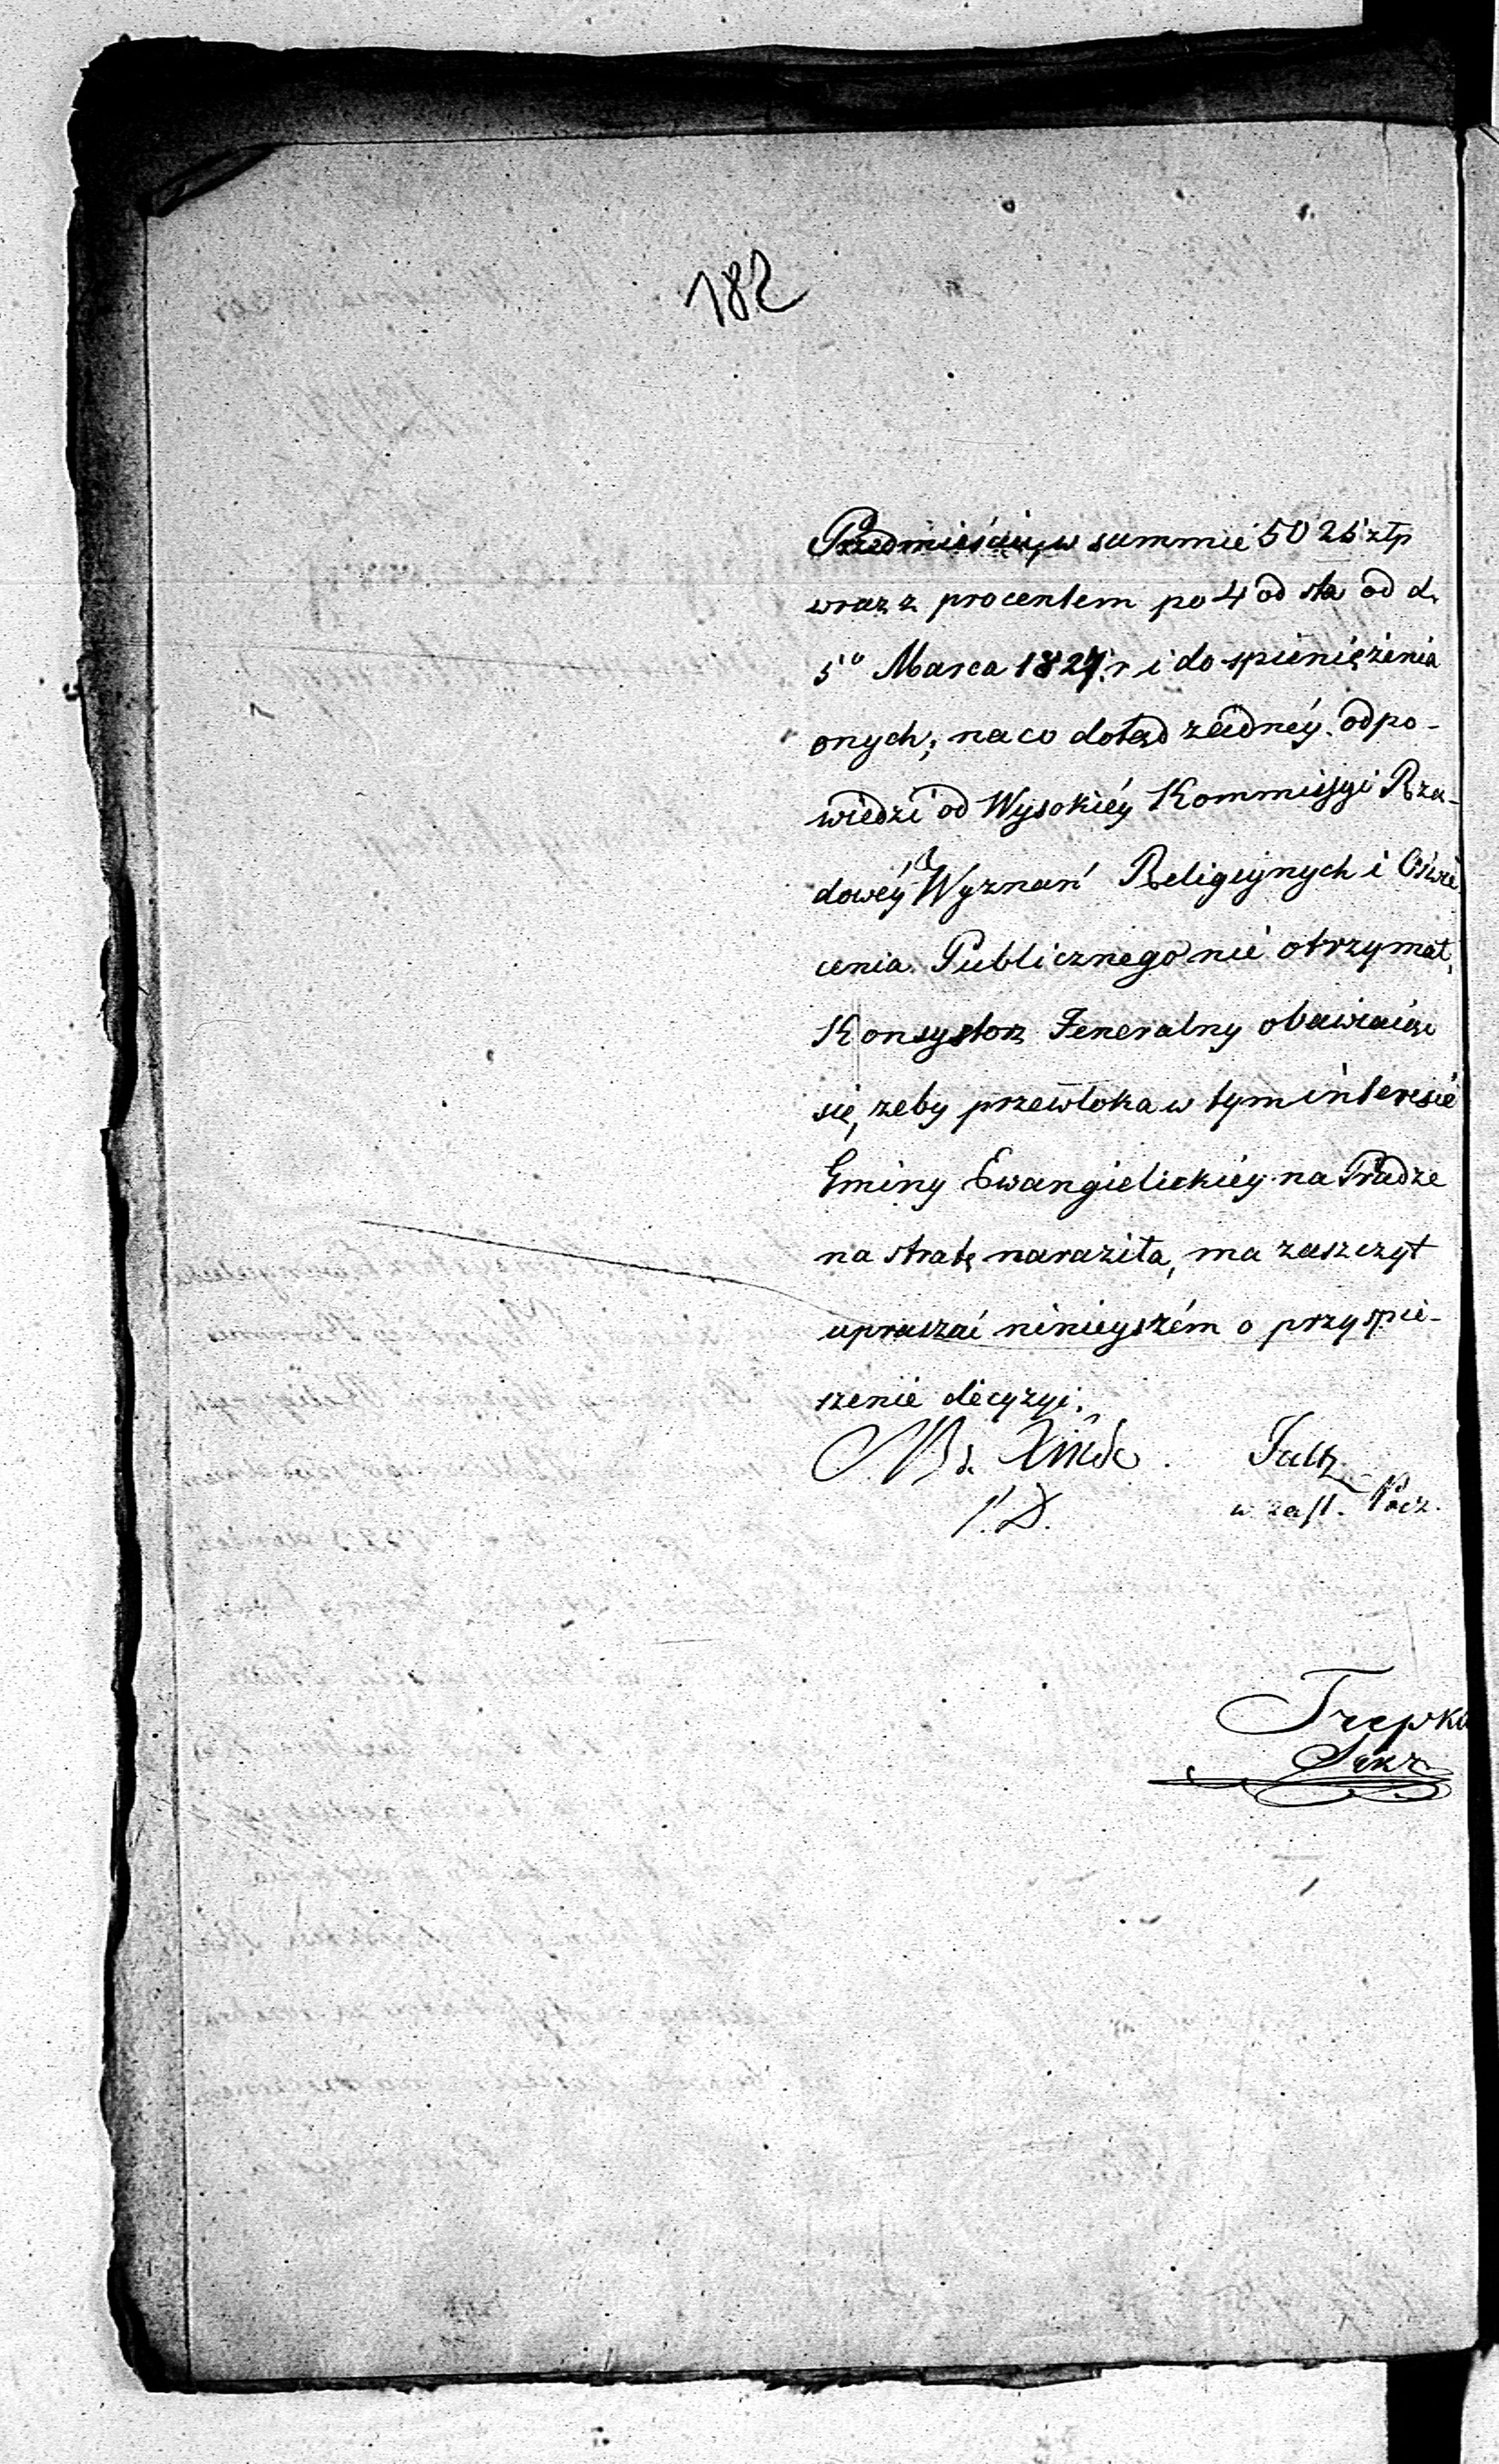 182
Przedmieściu, w summie 5025 złp
wraz z procentem po 4 od sta od d.
5º Marca 1827 r i do spieniężenia
onych; na co dotąd żadnéy odpo-
wiedzi od Wysokiéy Kommissyi Rzą-
dowéy Wyznań Religiynych i Oświe
cenia Publicznego nie otrzymał,
Konsystorz Jeneralny obawiaiąc
się, żeby przewłoka w tym interesie
Gminy Ewangielickiéy na Pradze
na stratę naraziła, ma zaszczyt
upraszać ninieyszém o przyspie-
szenie decyzyi.
w zast.
Trepka
Sekr